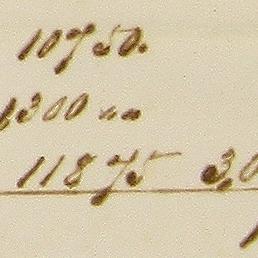 10750.
1300 "
11875 30